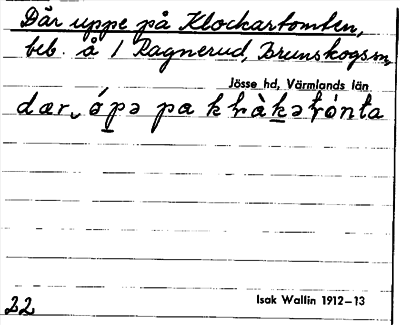 Där uppe på Klockartomten,
beb. å 1 Ragnerud, Brunskogs sn,
Jösse hd, Värmlands län
22
Isak Wallin 1912–13